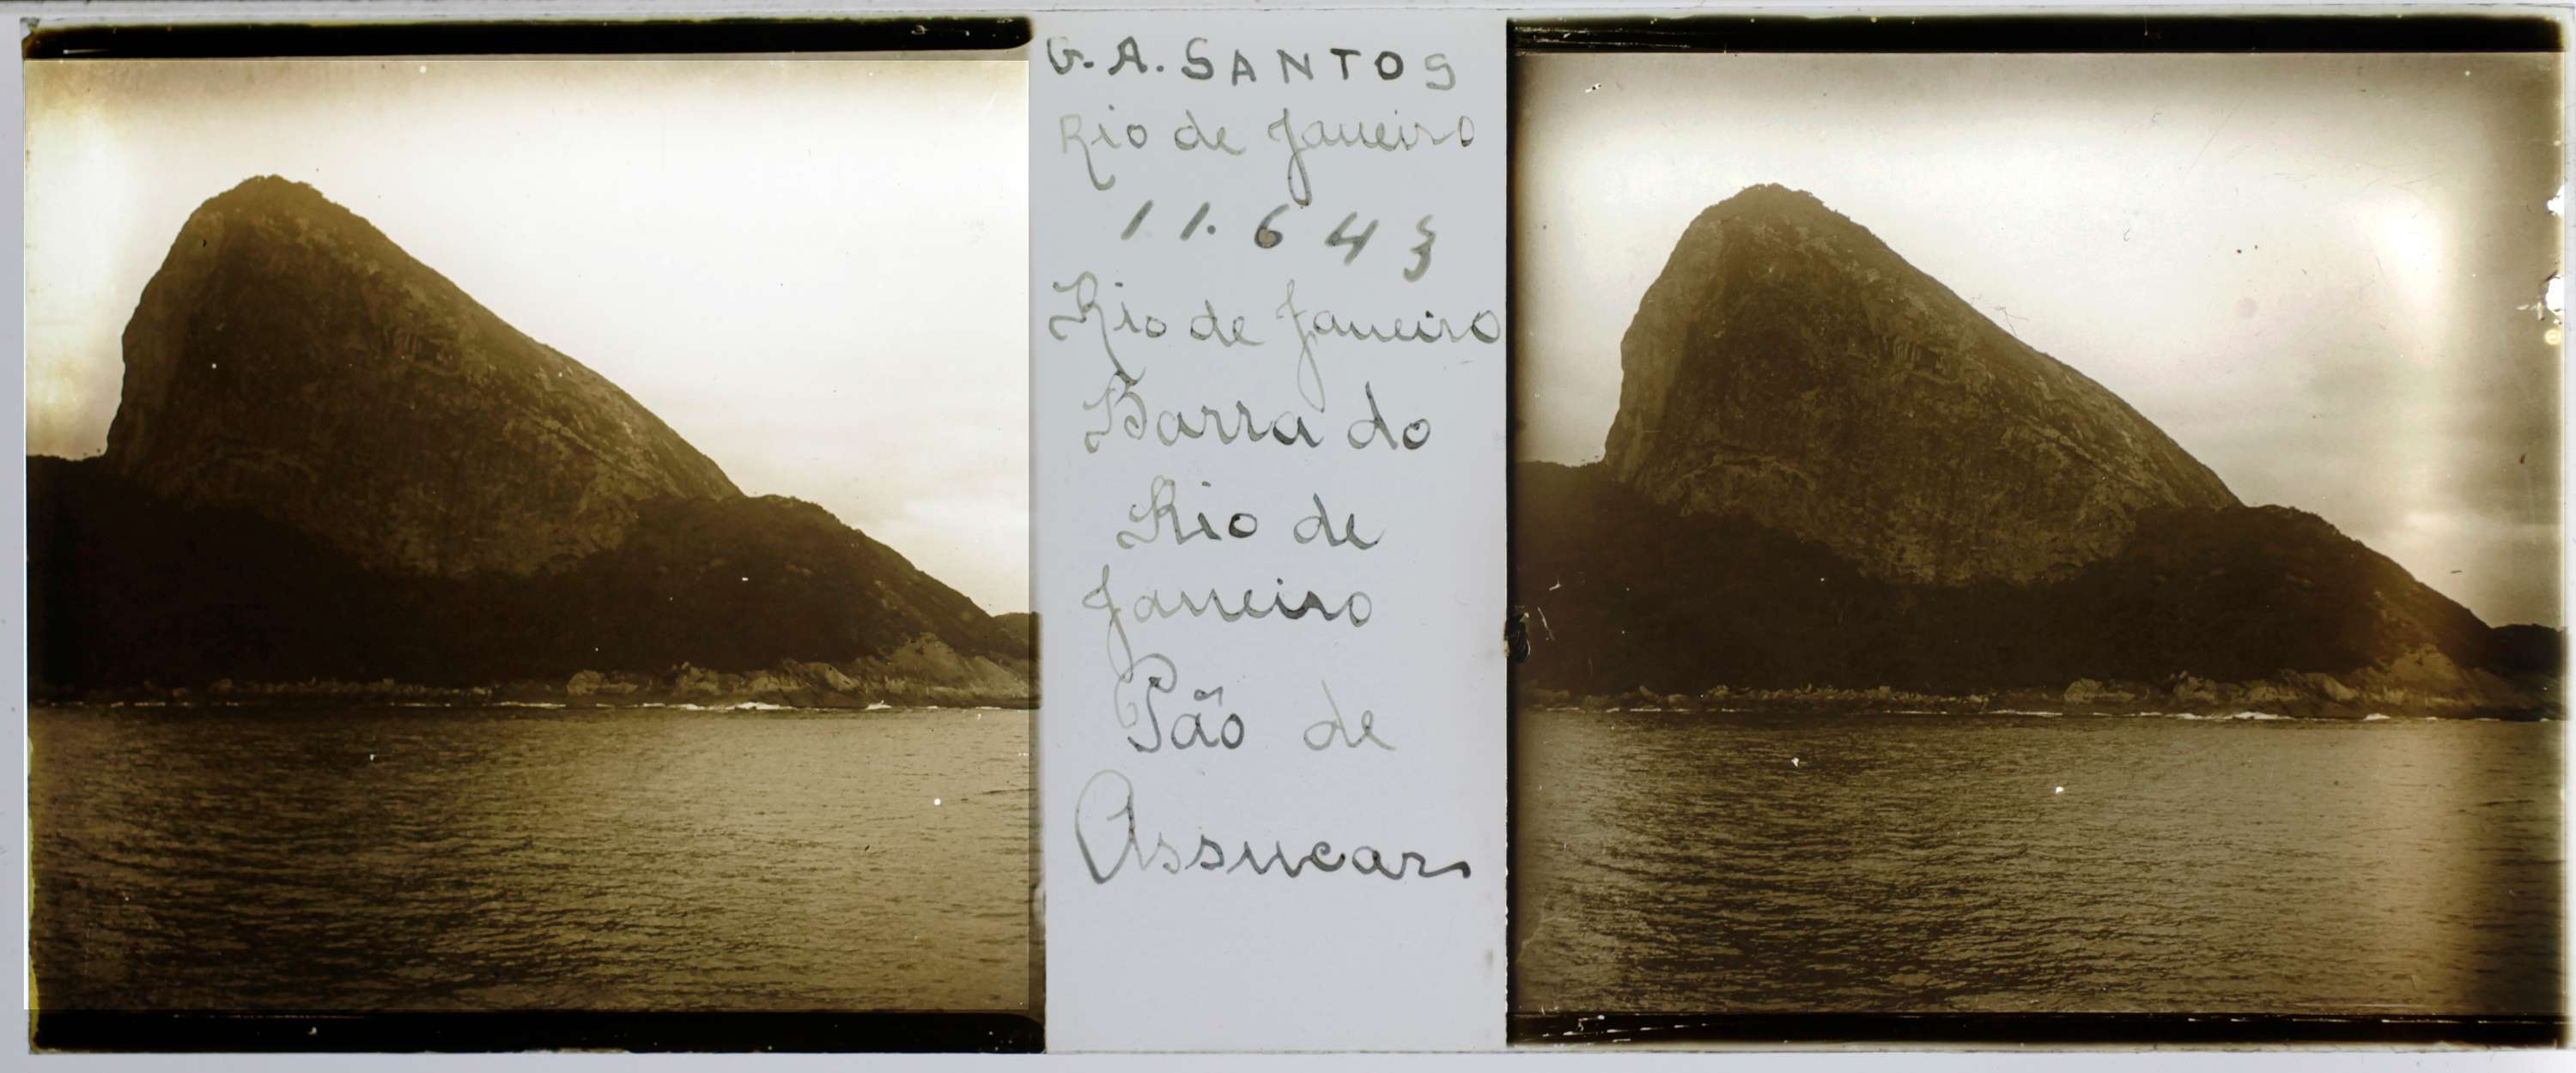 G. A. SANTOS
Rio de Janeiro
11.643
Rio de Janeiro
Barra do
Rio de
Janeiro
Pão de
Assucar